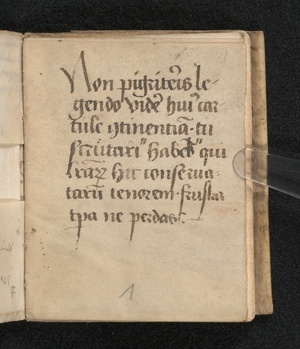 Non pigriteris le-
gendo vide hui' car-
tule 9tinentiā tu
scrutari habeb' qui
hic conserva-
taru tenorem frustas
tpa ne perdas:
1